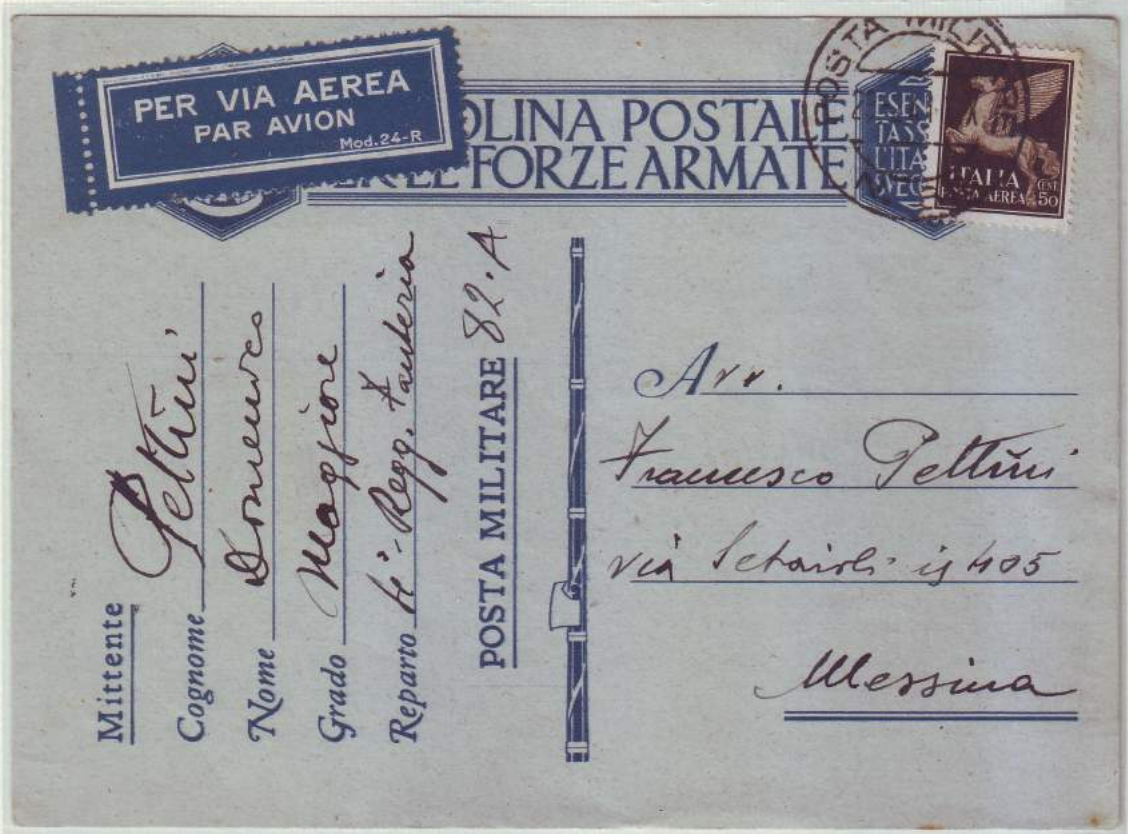 PER VIA AEREA
PAR AVION
Mod. 24-R
OLINA POSTALE
LE FORZE ARMATE
ESEN
TASS
L'ITA
POSTA MILIT
ITALIA
AEREA
CENT
50
Mittente
Cognome Pettini
Nome Domenico
Grado Maggiore
Reparto Regg. Fanteria
POSTA MILITARE 82.A
Avv.
Francesco Pettini
via is 405
Messina